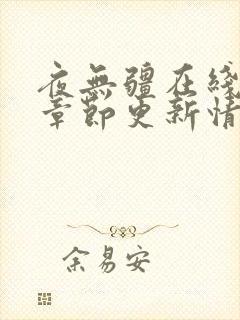 夜無疆在綫
章節更新情
余易安